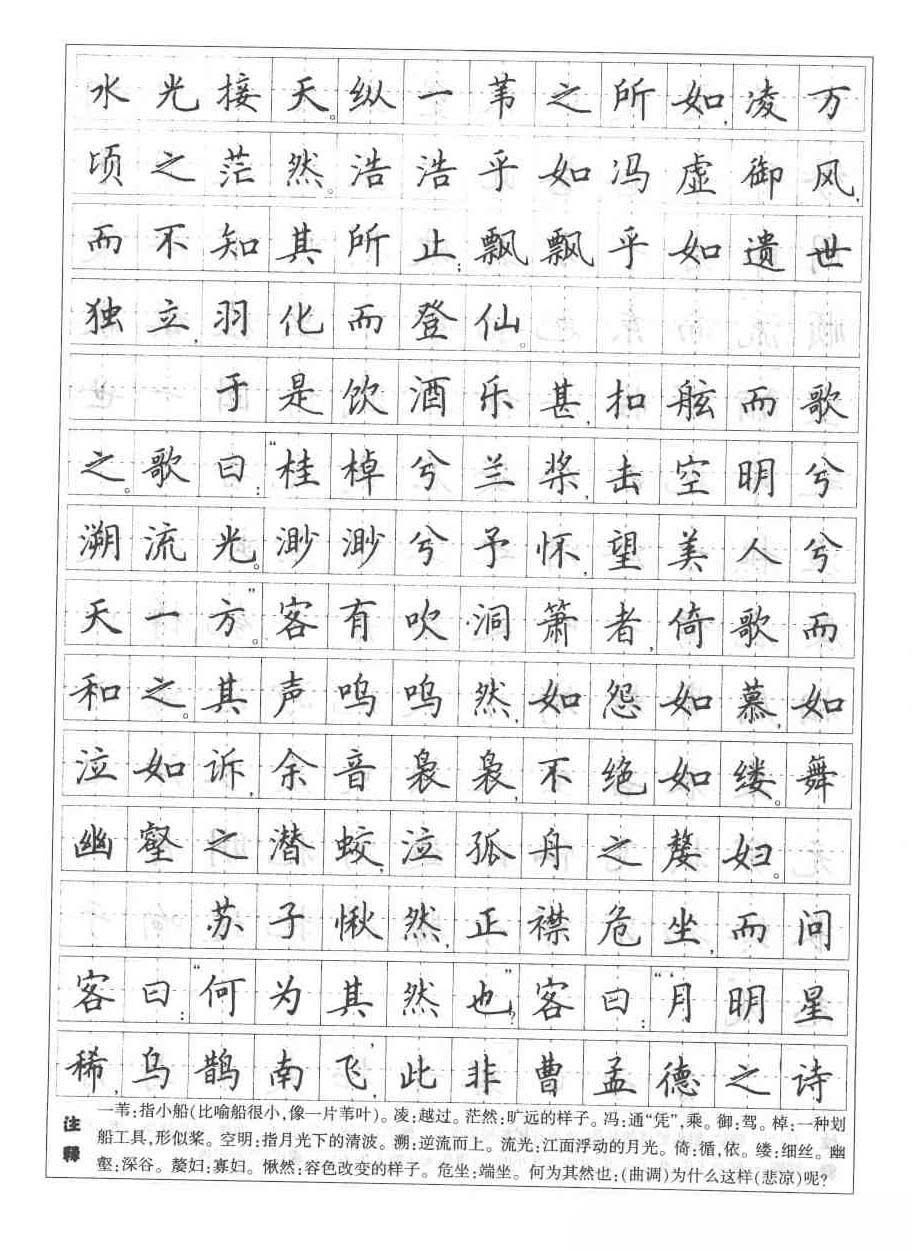 水光接天。纵一苇之所如,凌万
顷之茫然。浩浩乎如冯虚御风,
而不知其所止;飘飘乎如遗世
独立,羽化而登仙。
于是饮酒乐甚,扣舷而歌
之。歌曰:“桂棹兮兰桨,击空明兮
溯流光。渺渺兮予怀,望美人兮
天一方。”客有吹洞箫者,倚歌而
和之。其声呜呜然,如怨如慕,如
泣如诉,余音袅袅,不绝如缕。舞
幽壑之潜蛟,泣孤舟之嫠妇。
苏子愀然,正襟危坐,而问
客曰:“何为其然也?”客曰:“‘月明星
稀,乌鹊南飞’,此非曹孟德之诗
注释
一苇:指小船(比喻船很小,像一片苇叶)。凌:越过。茫然:旷远的样子。冯:通“凭”,乘。御:驾。棹:一种划
船工具,形似桨。空明:指月光下的清波。溯:逆流而上。流光:江面浮动的月光。倚:循,依。缕:细丝。幽
壑:深谷。嫠妇:寡妇。愀然:容色改变的样子。危坐:端坐。何为其然也:(曲调)为什么这样(悲凉)呢?